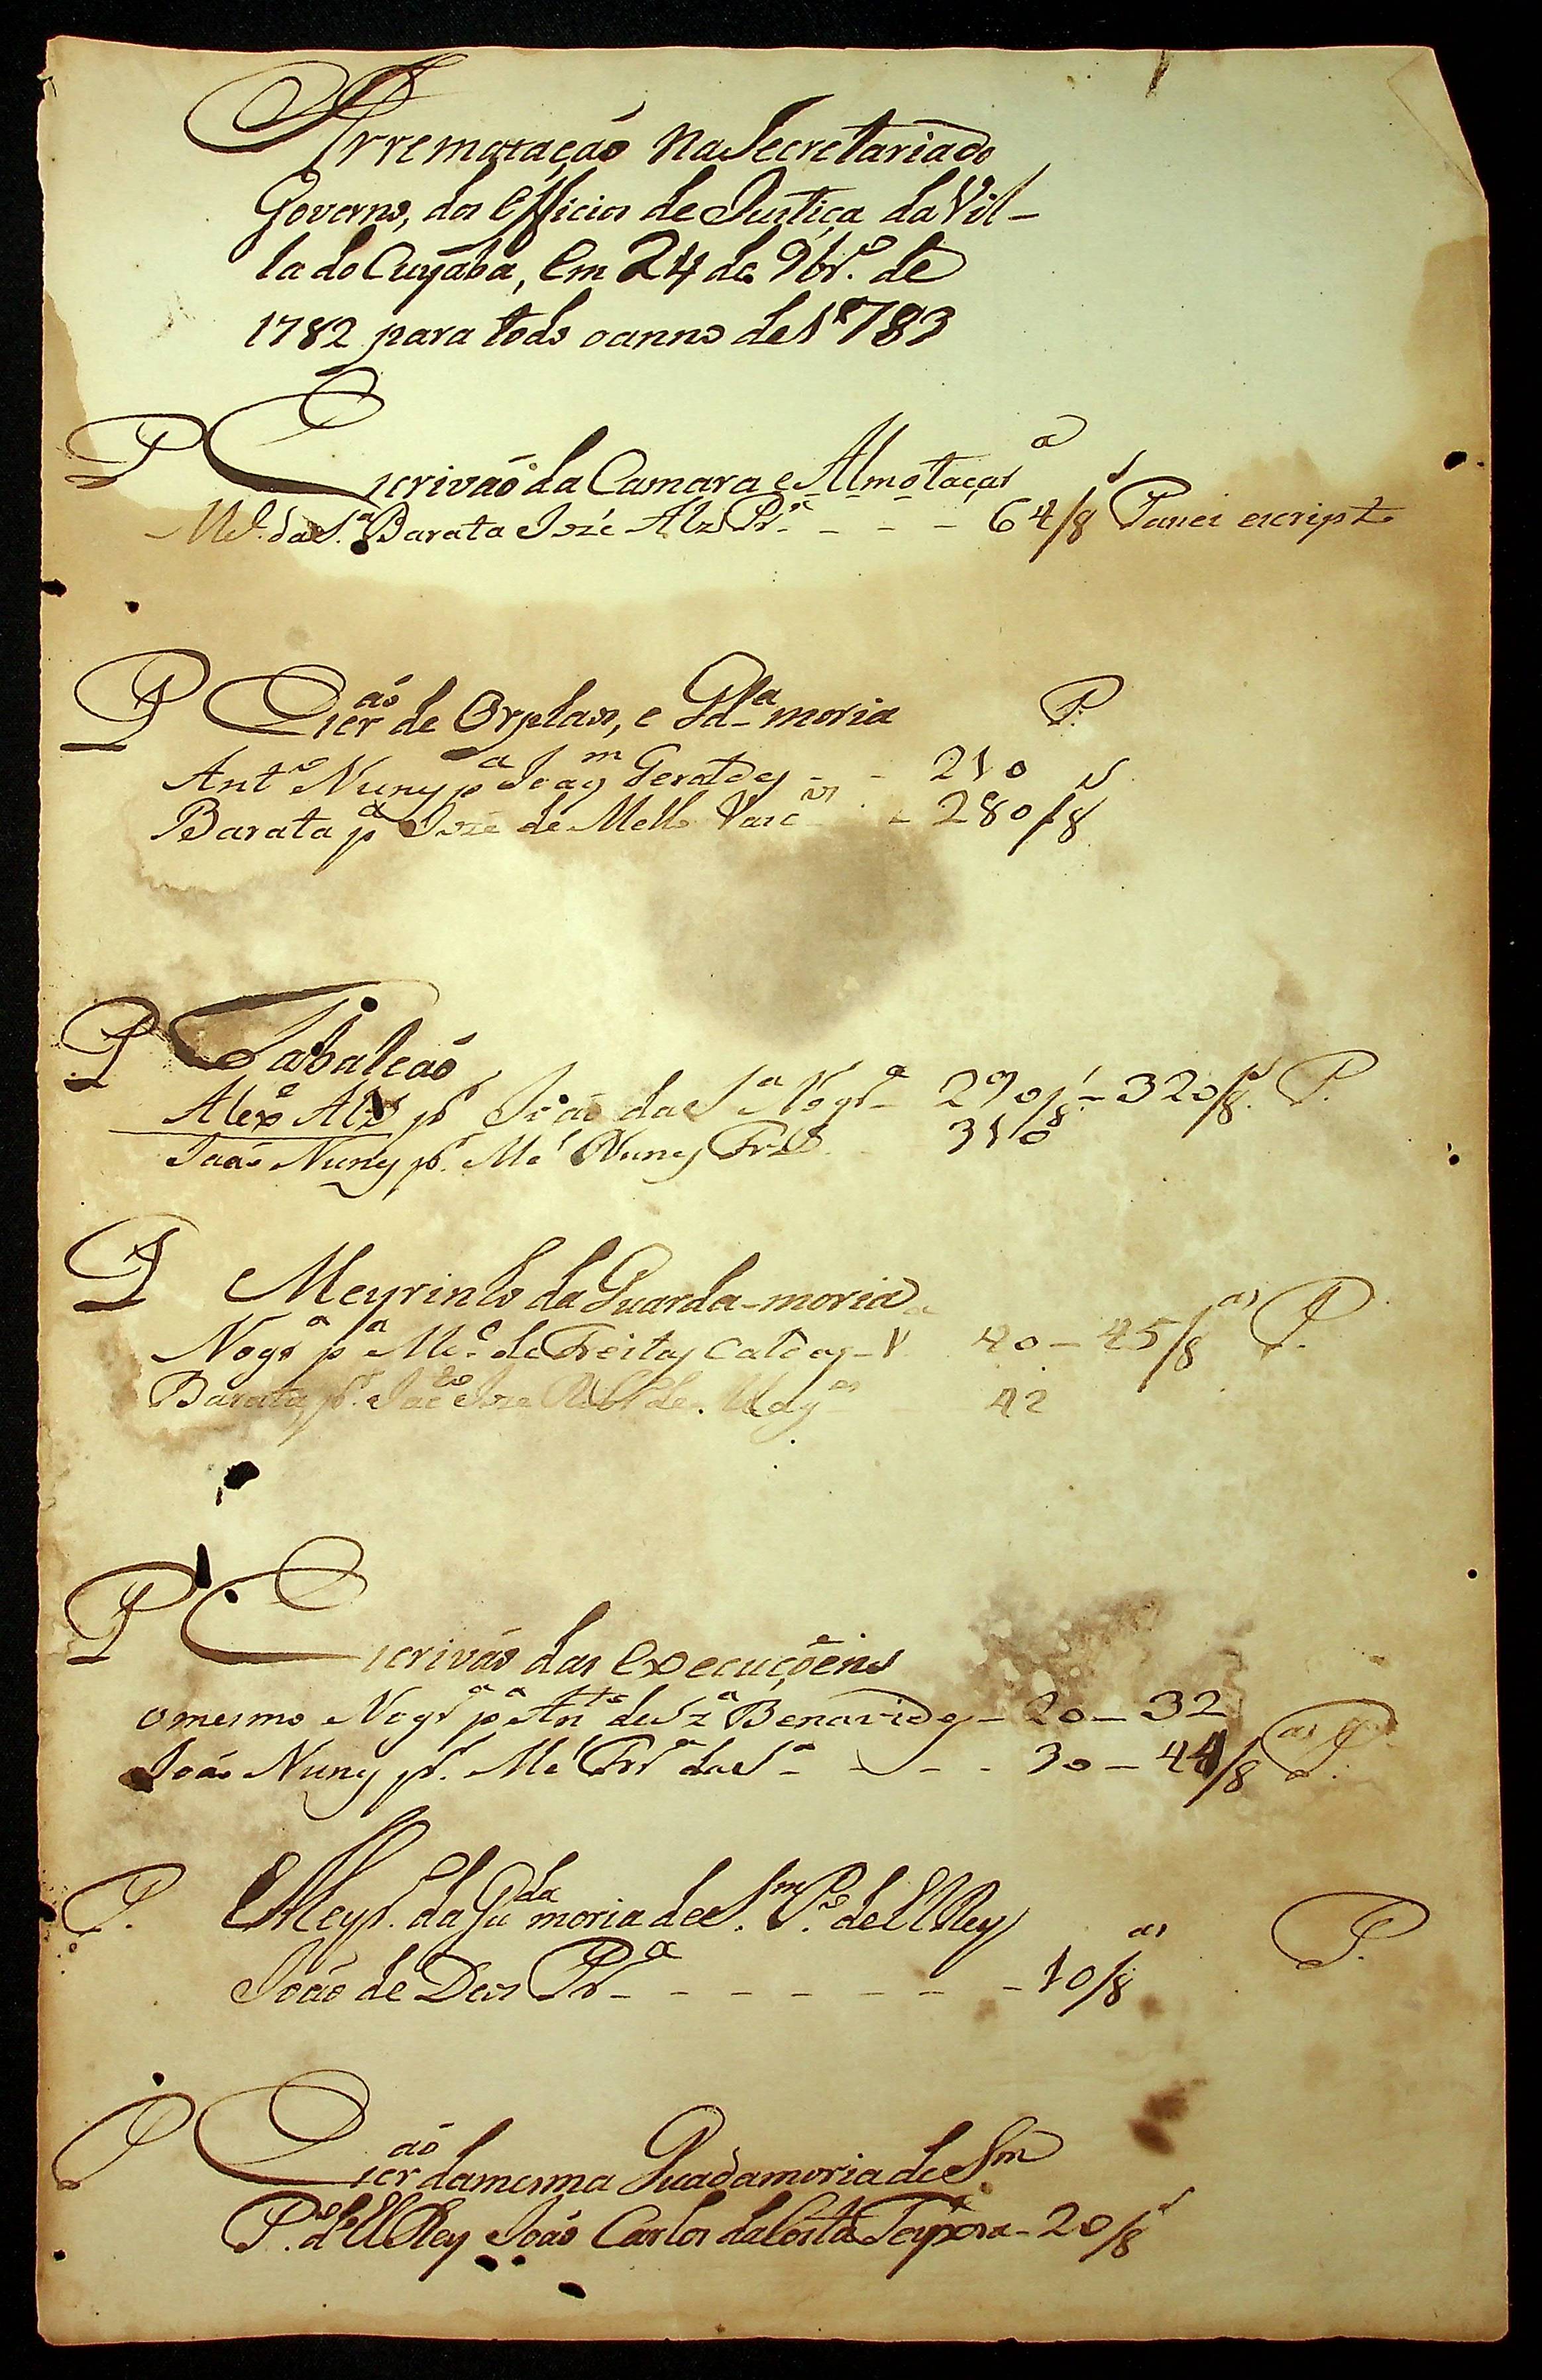 Arremataçaõ na Secretaria do
Governo, dos Officios de Justiça da Vil-
la do Cuyaba, em 24 de 9br.º de
1782 para todo o anno de 1783
P Escrivaõ da Camara e Almotaçar.ª
M.el da S.ª Barata Jozé Alz Pr.ª - - - 64/8.s Passei escripto
P Escr.aõ de Orplaos, e Gd.ª moria P.
Ant.º Nunes p.ª Joaq.m Geraldes - - 210
Barata p.ª Jozé de Mello Vasc.os - 280/8.s
P Tabaleaõ
Alex.e Alz p.r Joaõ da S.ª Nogr.ª 290/8.s - 320/8.s P.
Joaõ Nunes p.r M.el Nunes Frz 310
P Meyrinho da Guarda-moria
Nogr.ª p.ª M.el de Freitas Caldas - V 40 - 45/8.as P.
Barata p.r 42
P Escrivaõ das execuçoens
o mesmo Nogr.ª p.ª Ant.º de Sz.ª Benavides - 20 - 32
Joaõ Nunes p.r M.el Frr.ª da S.ª - - - 30 - 44/8.as P.
P. Meyr. da Gu.da moria de S.m P.º del Rey P.
Joaõ de Deos Pr.ª - - - - - - - 10/8.as
P Escr.aõ da mesma Guadamoria de S.m
P.º d'El Rey Joaõ Carlos da Costa - 20/8.s